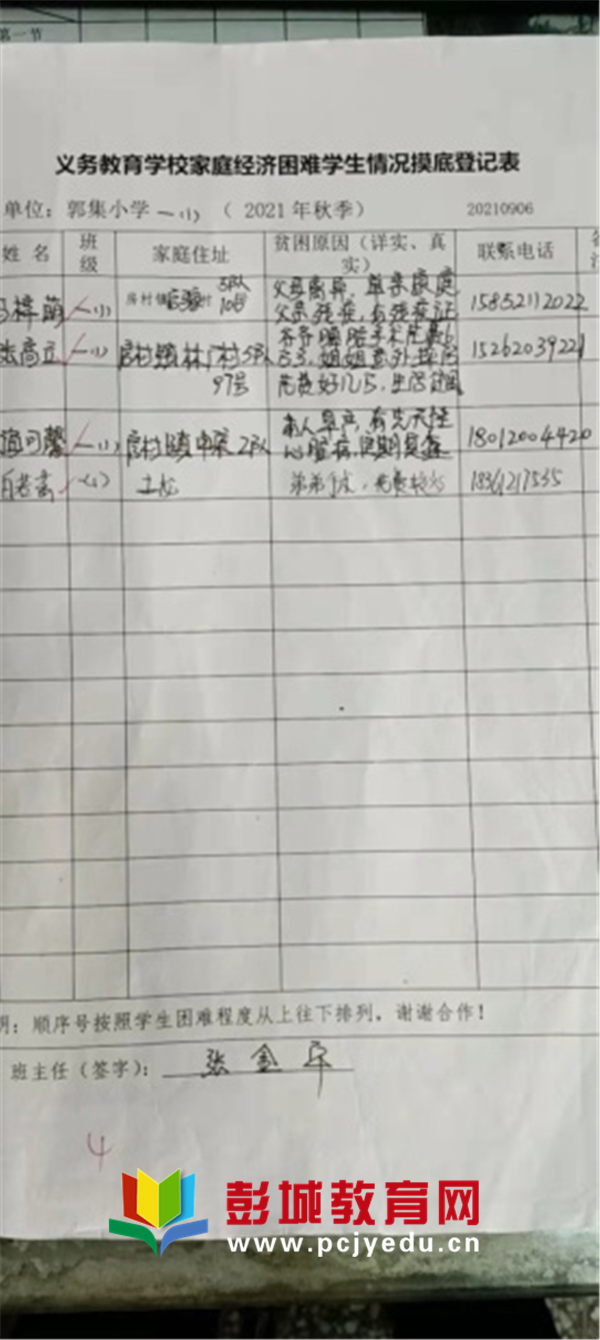 第一节
义务教育学校家庭经济困难学生情况摸底登记表
单位：郭集小学一(1)（2021年秋季） 20210906
姓名 班级 家庭住址 贫困原因（详实、真实） 联系电话
梓萌 一(1) 房村镇 5队10号 父母离异，单亲家庭 父亲残疾，有残疾证 15852112022
高立 一(1) 97号 姐姐意外 1526203922
可馨 一(1) 房村镇申宋2队 本人早产，有先天性心脏病，定期复查 18012004420
一(1) 弟弟 18361217535
明：顺序号按照学生困难程度从上往下排列。谢谢合作！
班主任（签字）：张金
4
彭城教育网
www.pcjyedu.cn